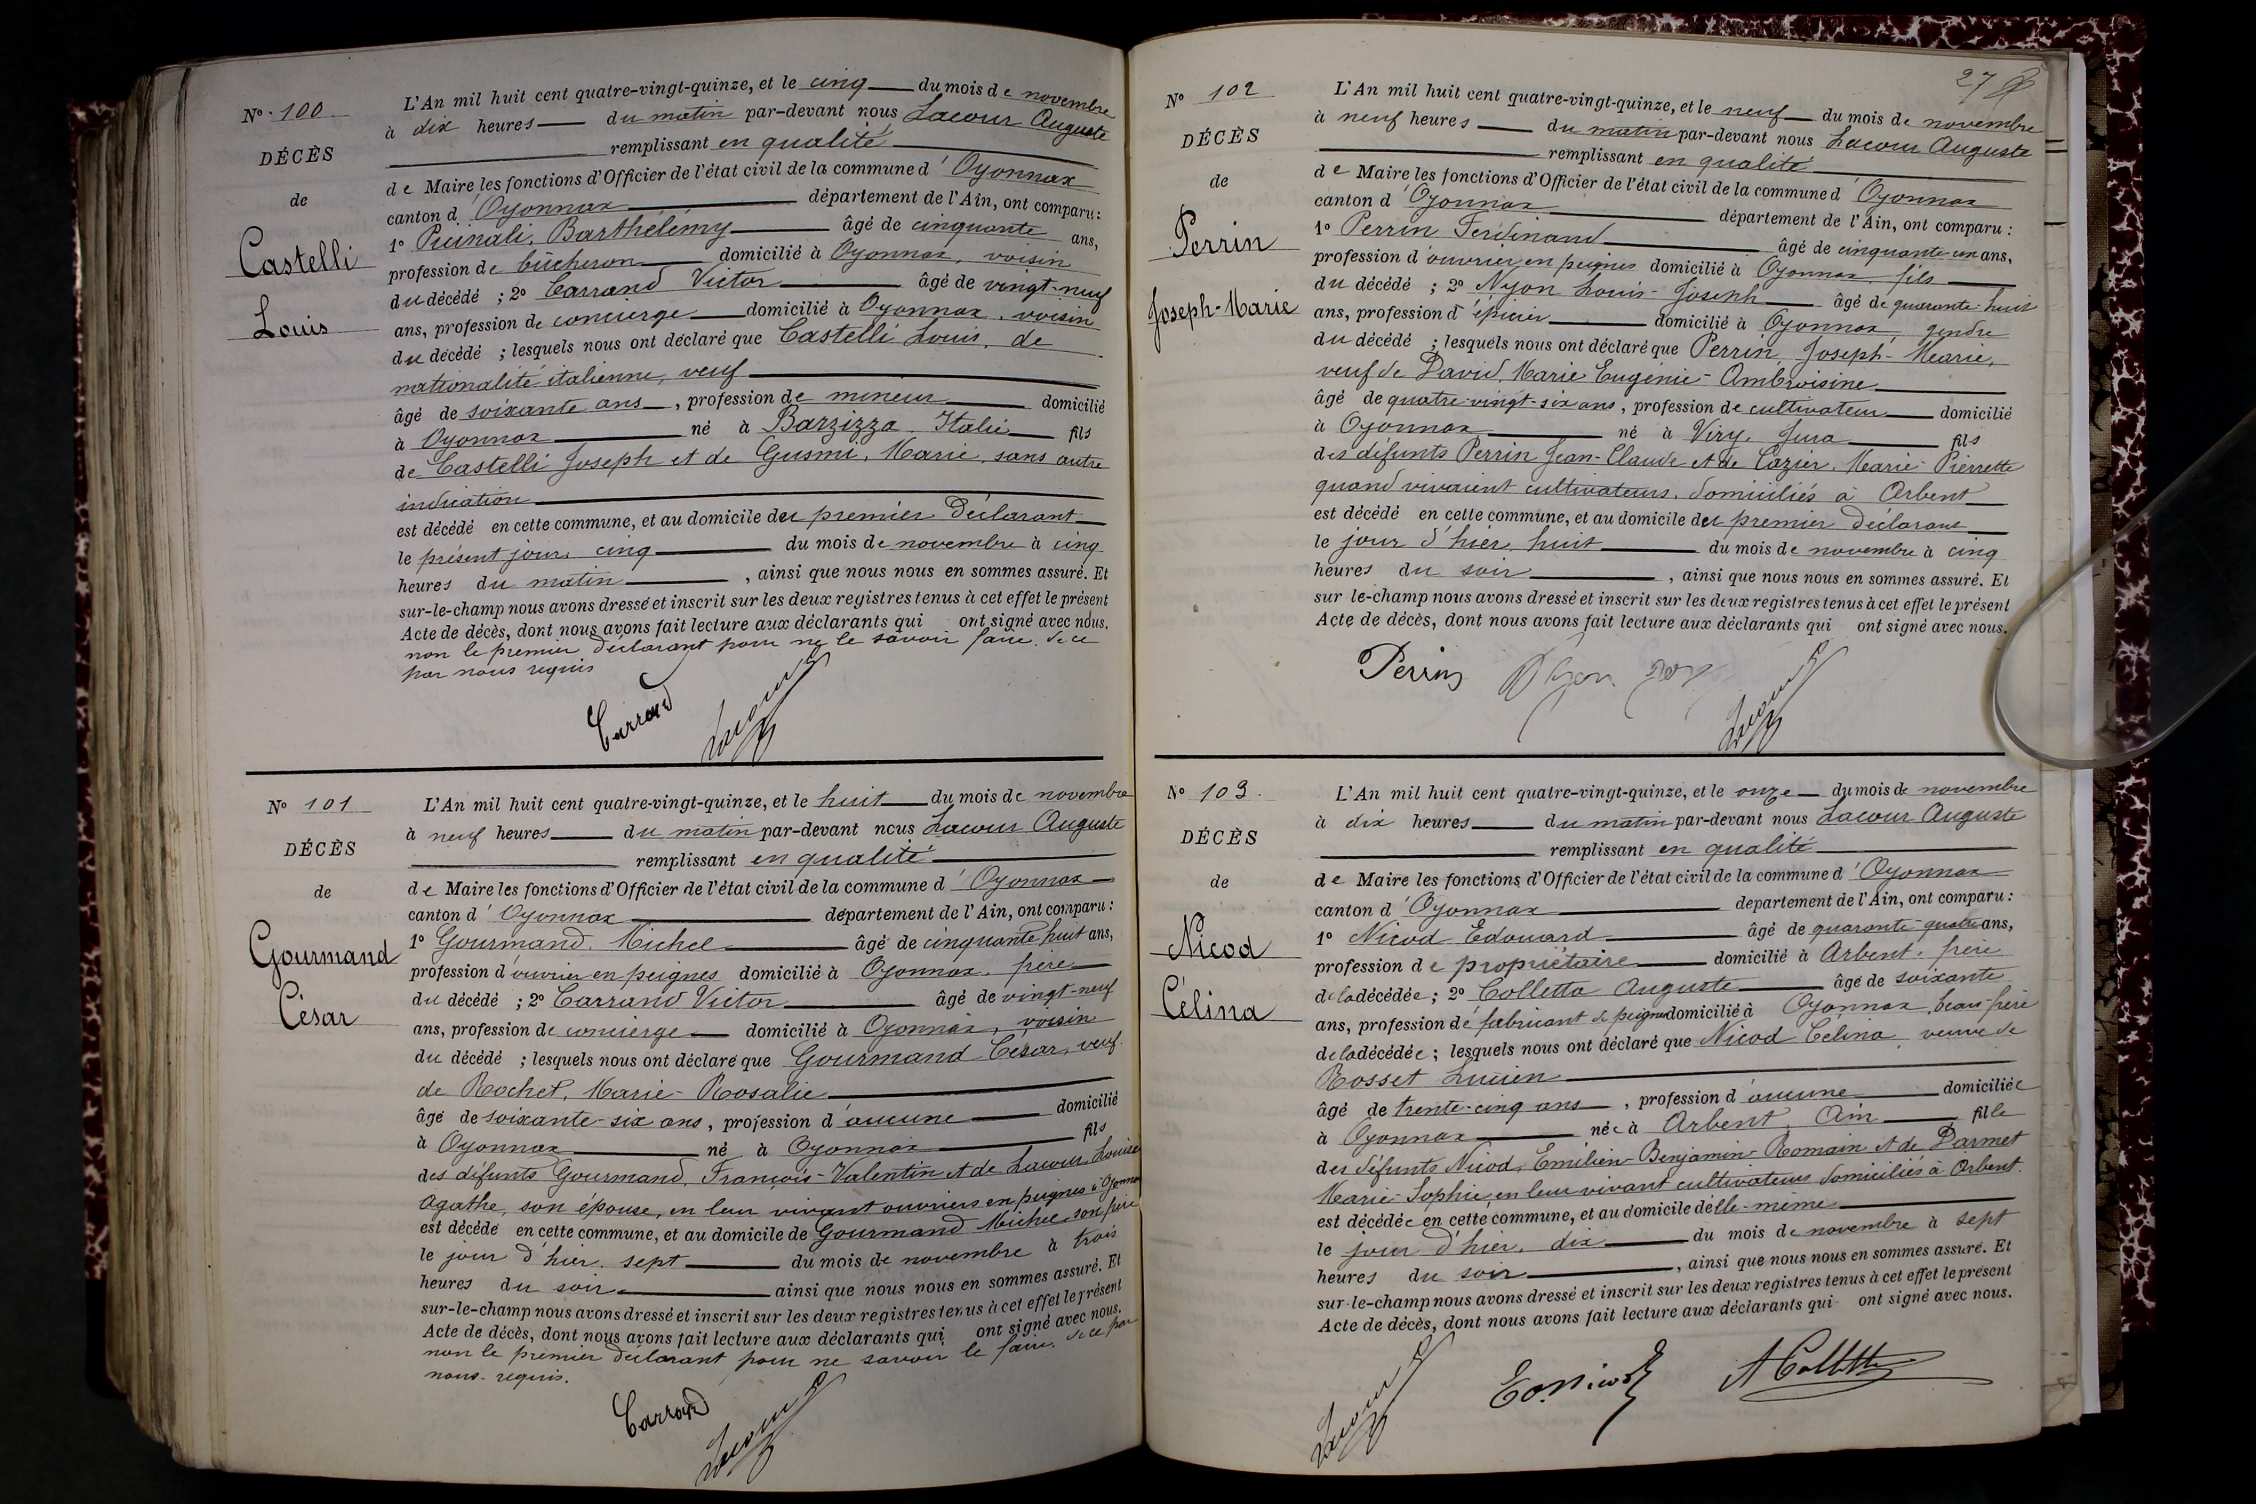 Nº 100
DÉCÈS
de
Castelli
Louis
L'An mil huit cent quatre-vingt-quinze, et le cinq du mois de novembre
à dix heures du matin par-devant nous Lacour Auguste
remplissant en qualité
de Maire les fonctions d'Officier de l'état civil de la commune d'Oyonnax
canton d'Oyonnax département de l'Ain, ont comparu:
1º Picinali, Barthélémy âgé de cinquante ans,
profession de bûcheron domicilié à Oyonnax, voisin
du décédé ; 2º Carrand Victor âgé de vingt-neuf
ans, profession de concierge domicilié à Oyonnax, voisin
du décédé ; lesquels nous ont déclaré que Castelli Louis, de
nationalité italienne, veuf
âgé de soixante ans, profession de mineur domicilié
à Oyonnax né à Barzizza, Italie fils
de Castelli Joseph et de Gusmi, Marie, sans autre
indication
est décédé en cette commune, et au domicile du premier déclarant
le présent jour, cinq du mois de novembre à cinq
heures du matin, ainsi que nous nous en sommes assuré. Et
sur-le-champ nous avons dressé et inscrit sur les deux registres tenus à cet effet le présent
Acte de décès, dont nous avons fait lecture aux déclarants qui ont signé avec nous,
non le premier déclarant pour ne le savoir faire, de ce
par nous requis
Carrand Lacour
Nº 101
DÉCÈS
de
Gourmand
César
L'An mil huit cent quatre-vingt-quinze, et le huit du mois de novembre
à neuf heures du matin par-devant nous Lacour Auguste
remplissant en qualité
de Maire les fonctions d'Officier de l'état civil de la commune d'Oyonnax
canton d'Oyonnax département de l'Ain, ont comparu:
1º Gourmand, Michel âgé de cinquante huit ans,
profession d'ouvrier en peignes domicilié à Oyonnax, frère
du décédé ; 2º Carrand Victor âgé de vingt-neuf
ans, profession de concierge domicilié à Oyonnax, voisin
du décédé ; lesquels nous ont déclaré que Gourmand César, veuf
de Rochet, Marie-Rosalie
âgé de soixante-six ans, profession d'aucune domicilié
à Oyonnax né à Oyonnax fils
des défunts Gourmand, François-Valentin et de Lacour, Louise
Agathe, son épouse, en leur vivant ouvriers en peignes à Oyonnax
est décédé en cette commune, et au domicile de Gourmand Michel, son frère
le jour d'hier, sept du mois de novembre à trois
heures du soir ainsi que nous nous en sommes assuré. Et
sur-le-champ nous avons dressé et inscrit sur les deux registres tenus à cet effet le présent
Acte de décès, dont nous avons fait lecture aux déclarants qui ont signé avec nous,
non le premier déclarant pour ne savoir le faire, de ce par
nous requis.
Carrand Lacour
27
Nº 102
DÉCÈS
de
Perrin
Joseph-Marie
L'An mil huit cent quatre-vingt-quinze, et le neuf du mois de novembre
à neuf heures du matin par-devant nous Lacour Auguste
remplissant en qualité
de Maire les fonctions d'Officier de l'état civil de la commune d'Oyonnax
canton d'Oyonnax département de l'Ain, ont comparu:
1º Perrin Ferdinand âgé de cinquante un ans,
profession d'ouvrier en peignes domicilié à Oyonnax, fils
du décédé ; 2º Nyon Louis-Joseph âgé de quarante-huit
ans, profession d'épicier domicilié à Oyonnax, gendre
du décédé ; lesquels nous ont déclaré que Perrin, Joseph-Marie,
veuf de David, Marie Eugénie-Ambroisine
âgé de quatre-vingt-six ans, profession de cultivateur domicilié
à Oyonnax né à Viry, Jura fils
des défunts Perrin Jean-Claude et de Cazier, Marie-Pierrette
quand vivaient cultivateurs, domiciliés à Arbent
est décédé en cette commune, et au domicile du premier déclarant
le jour d'hier, huit du mois de novembre à cinq
heures du soir, ainsi que nous nous en sommes assuré. Et
sur le-champ nous avons dressé et inscrit sur les deux registres tenus à cet effet le présent
Acte de décès, dont nous avons fait lecture aux déclarants qui ont signé avec nous.
Perrin Nyon Lacour
Nº 103.
DÉCÈS
de
Nicod
Célina
L'An mil huit cent quatre-vingt-quinze, et le onze du mois de novembre
à dix heures du matin par-devant nous Lacour Auguste
remplissant en qualité
de Maire les fonctions d'Officier de l'état civil de la commune d'Oyonnax
canton d'Oyonnax departement de l'Ain, ont comparu:
1º Nicod Edouard âgé de quarante-quatre ans,
profession de propriétaire domicilié à Arbent, frère
de la décédée ; 2º Colletta Auguste âgé de soixante
ans, profession de fabricant de peignes domicilié à Oyonnax, beau-frère
de la décédée ; lesquels nous ont déclaré que Nicod Célina, veuve de
Rosset Lucien
âgée de trente-cinq ans, profession d'aucune domiciliée
à Oyonnax née à Arbent, Ain fille
des défunts Nicod, Emilien-Benjamin-Romain et de Darmet
Marie-Sophie, en leur vivant cultivateurs domiciliés à Arbent.
est décédée en cette commune, et au domicile d'elle-même
le jour d'hier, dix du mois de novembre à sept
heures du soir, ainsi que nous nous en sommes assuré. Et
sur-le-champ nous avons dressé et inscrit sur les deux registres tenus à cet effet le présent
Acte de décès, dont nous avons fait lecture aux déclarants qui ont signé avec nous.
Lacour Ed. Nicod A Colletta